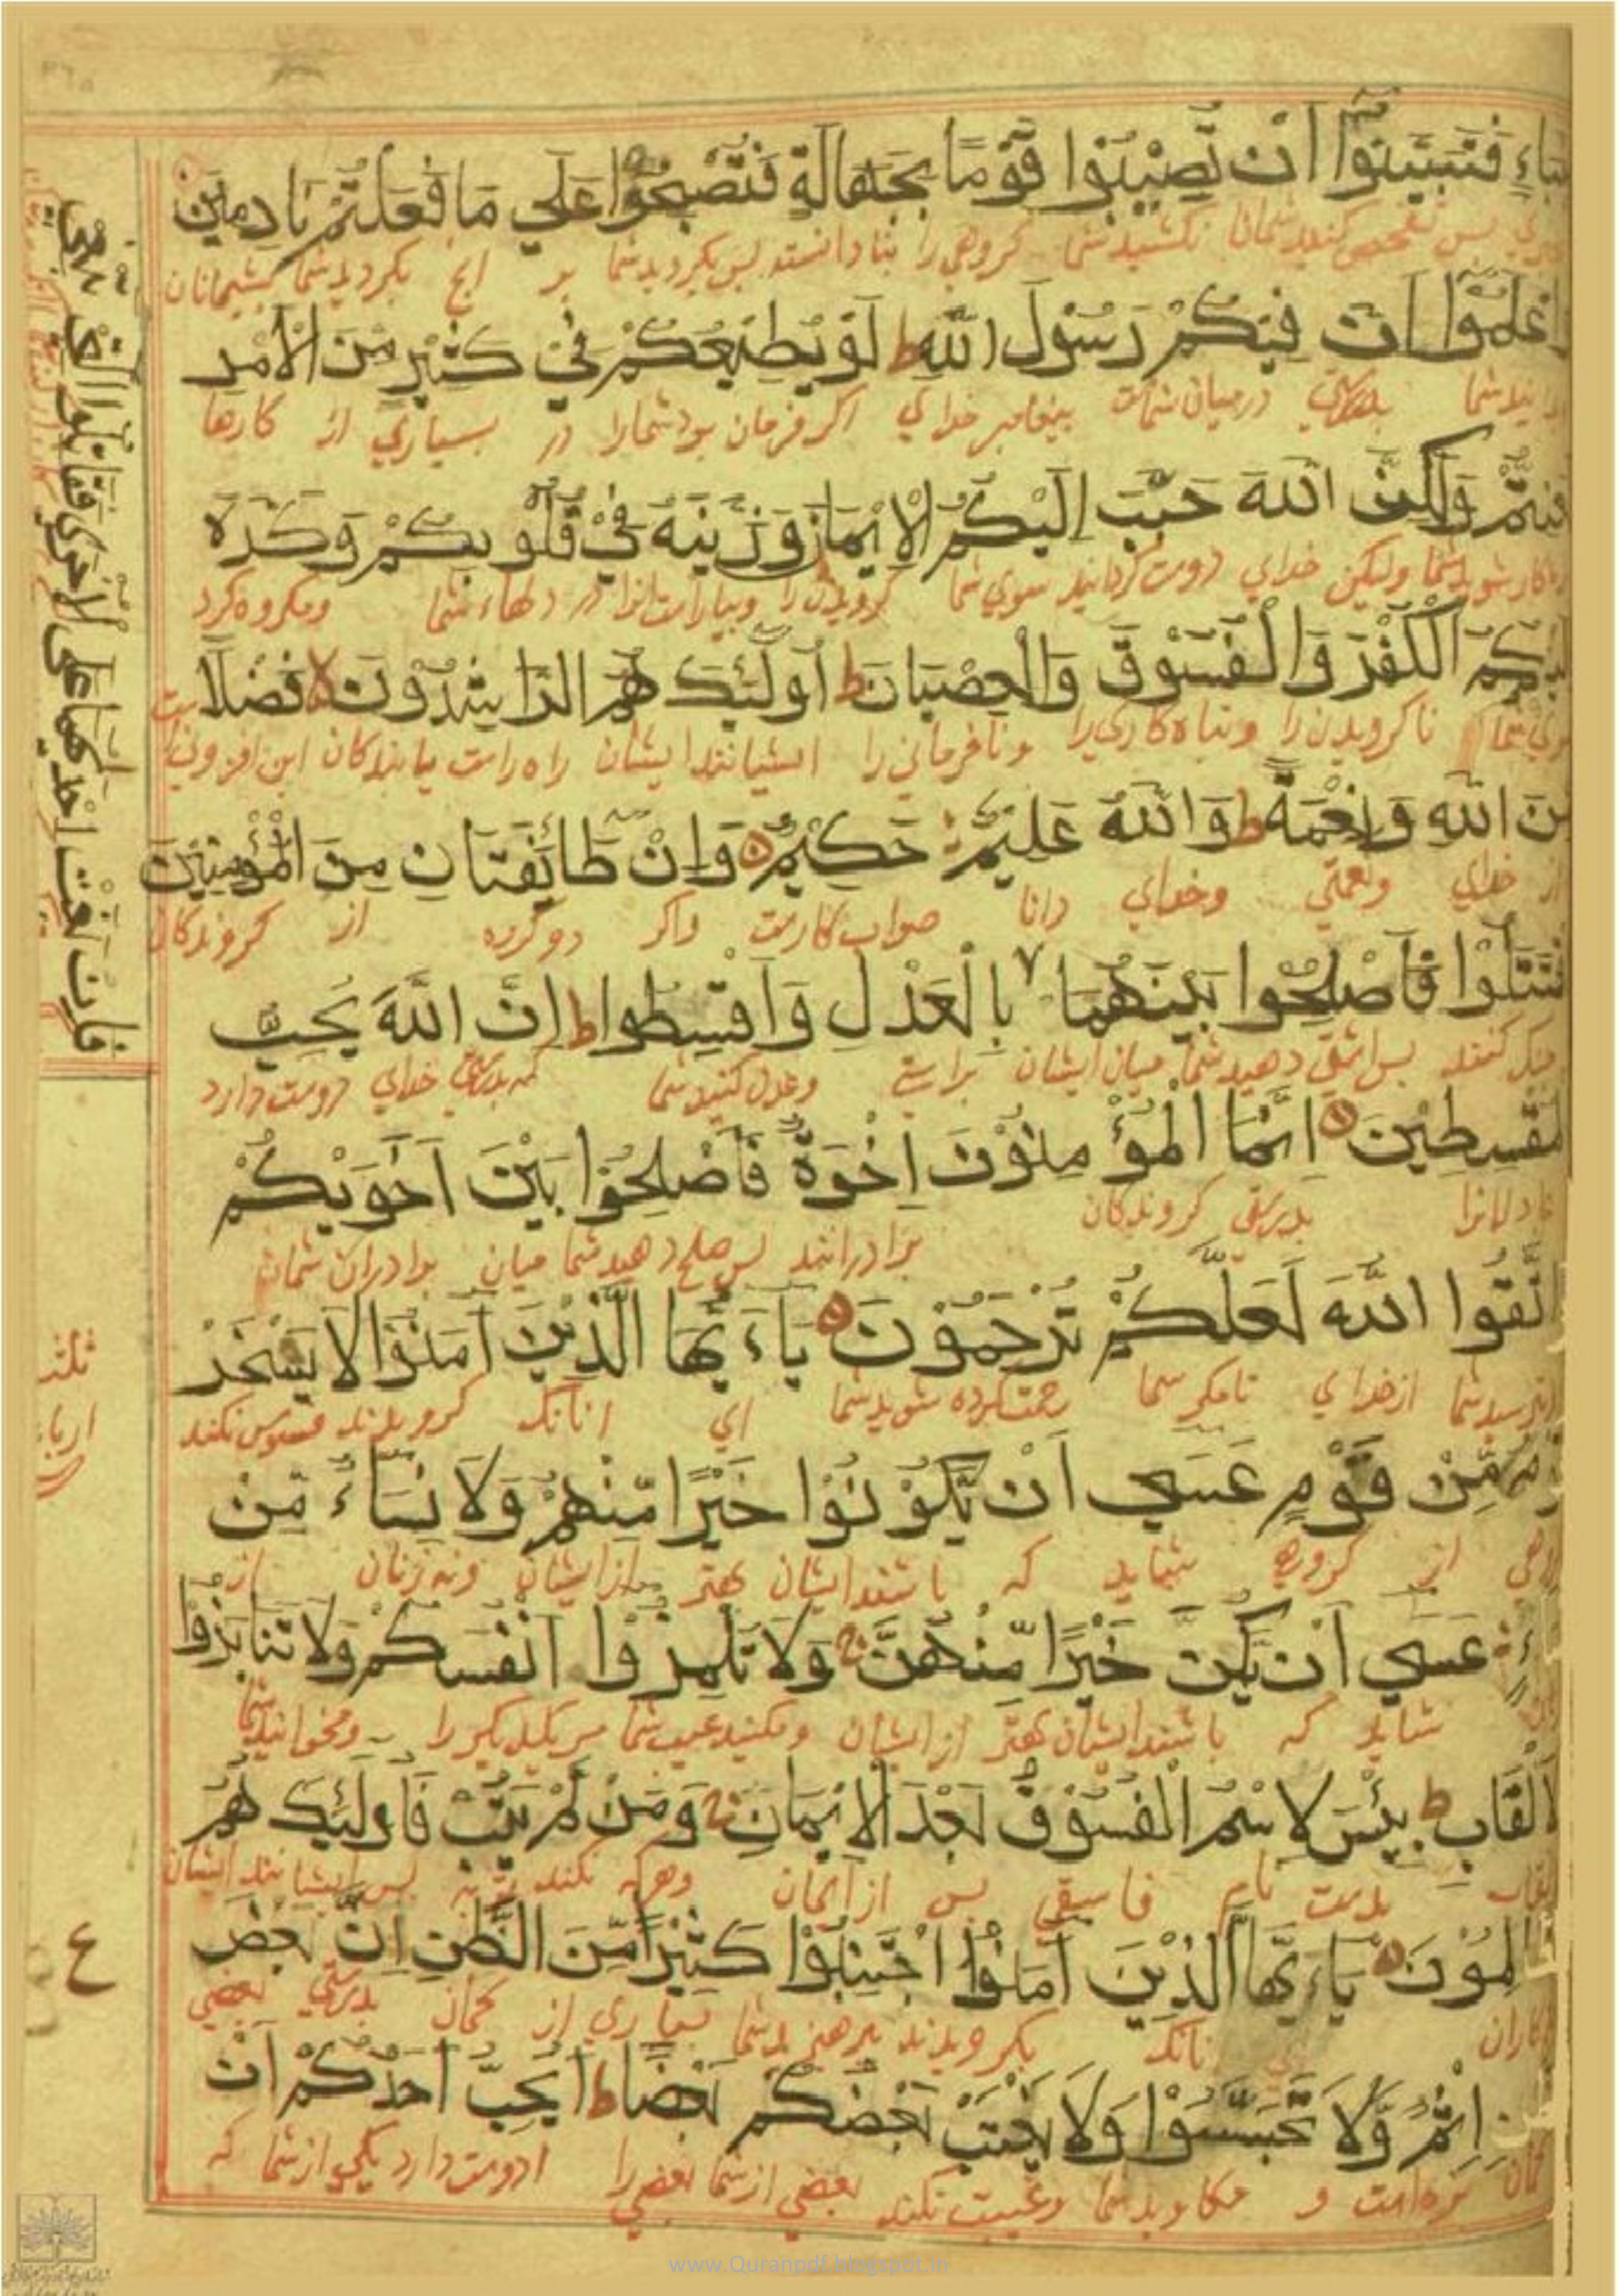 بناءٍ فتبينوا ان تصيبوا قوما بجهالة فتصبحوا على ما فعلتم نادمين
پس تفحص کنید شمانا نکشید شما کروهی را بنادانسته پس بکردید شما بر انچ بکردید شما پشیمانان
اعلموا ان فيكم رسول الله ط لو يطيعكم في كثير من الامر
بدانید شما بدرستی درمیان شماست پیغامبر خدای اکر فرمان بود شمارا در بسیاری از کارها
لعنتم ولكن الله حبب اليكم الايمان وزينه في قلوبكم وكره
شما ولیکن خدای دوست کردانید سوی شما کرویدن را وبیاراست انرا در دلهاء شما ومکروه کرد
اليكم الكفر والفسوق والعصيان ط اولئك هم الراشدون لا فضلا
سوی شما ناکرویدن را وتباه کاری را ونافرمانی را ایشیانند ایشان راه راست یابندکان این افزونی است
من الله ونعمة ط والله عليم حكيم ه وان طائفتان من المؤمنين
از خدای ونعمتی وخدای دانا صواب کارست واکر دو کروه از کروندکان
اقتتلوا فاصلحوا بينهما بالعدل واقسطوا ط ان الله يحب
جنک کنند پس اشتی دهید شما میان ایشان براستی وعدل کنید شما که بدرستی خدای دوست دارد
المقسطين ه انما المؤمنون اخوة فاصلحوا بين اخويكم
عادلانرا بدرستی کروندکان
برادرانند پس صلح دهید شما میان برادران شمان
اتقوا الله لعلكم ترحمون ه ياءيها الذين آمنوا لا يسخر
بترسید شما ازخدای تامکر شما رحمت کرده شوید شما ای انانکه کرویدند فسوس نکند
قوم من قوم عسى ان يكونوا خيرا منهم ولا نساء من
کروهی از کروهی شاید که باشند ایشان بهتر ازایشان ونه زنان از
نساء عسى ان يكن خيرا منهن ولا تلمزوا انفسكم ولا تنابزوا
شاید که باشند ایشان بهتر ازایشان ومکنید عیب شما مر یکدیکر را ومخوانید شما
الالقاب ط بئس لاسم الفسوق بعد الايمان ومن لم يتب فاولئك هم
القاب بدست نام فاسقی پس ازایمان وهرکه نکند توبه پس ایشیانند ایشان
لمون ه ياءيها الذين آمنوا اجتنبوا كثيرا من الظن ان بعض
کاران نانکه بکرویدند بپرهیزید شما بسیاری از کمان بدرستی بعضی
اثم ولا تجسسوا ولا يغتب بعضكم بعضا ط ايحب احدكم ان
کمان بزه است و مکاوید شما وغیبت نکند بعضی ازشما بعضی را ادوست دارد یکی ازشما که
فان بغت احديهما على الاخرى فقاتلوا التى تبغى
ثلثه
ارباع
ع
www.Quranpdf.blogspot.in